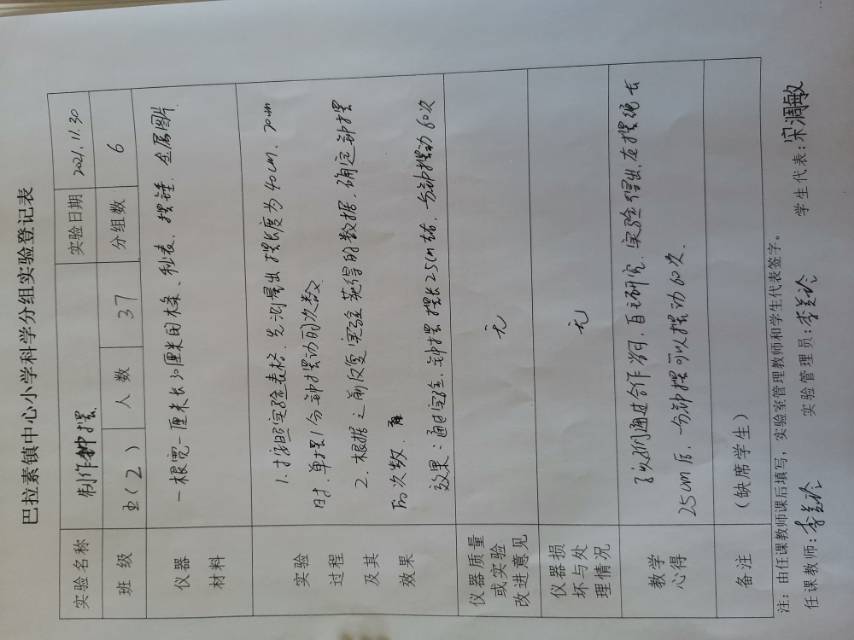 巴拉素镇中心小学科学分组实验登记表
实验名称 制作钟摆 实验日期 2021.11.30
班 级 五(2) 人 数 37 分组数 6
仪器
材料
一根宽一厘米长 厘米的木条、秒表、摆锤、金属圆片
实验
过程
及其
效果
1.按照实验表格,先测量出摆长度为40cm、20cm
时,单摆1分钟摆动的次数
2.根据之前反复实验获得的数据,确定钟摆
的次数。
效果:通过实验,钟摆摆长25cm 一分钟摆动60次
仪器质量
或实验
改进意见
无
仪器损
坏与处
理情况
无
教学
心得
通过合作 自主研究,实验得出,在摆绳长
25cm 一分钟摆可以摆动60次.
备注
(缺席学生)
注:由任课教师课后填写,实验室管理教师和学生代表签字。
任课教师: 实验管理员: 学生代表:宋凋敏